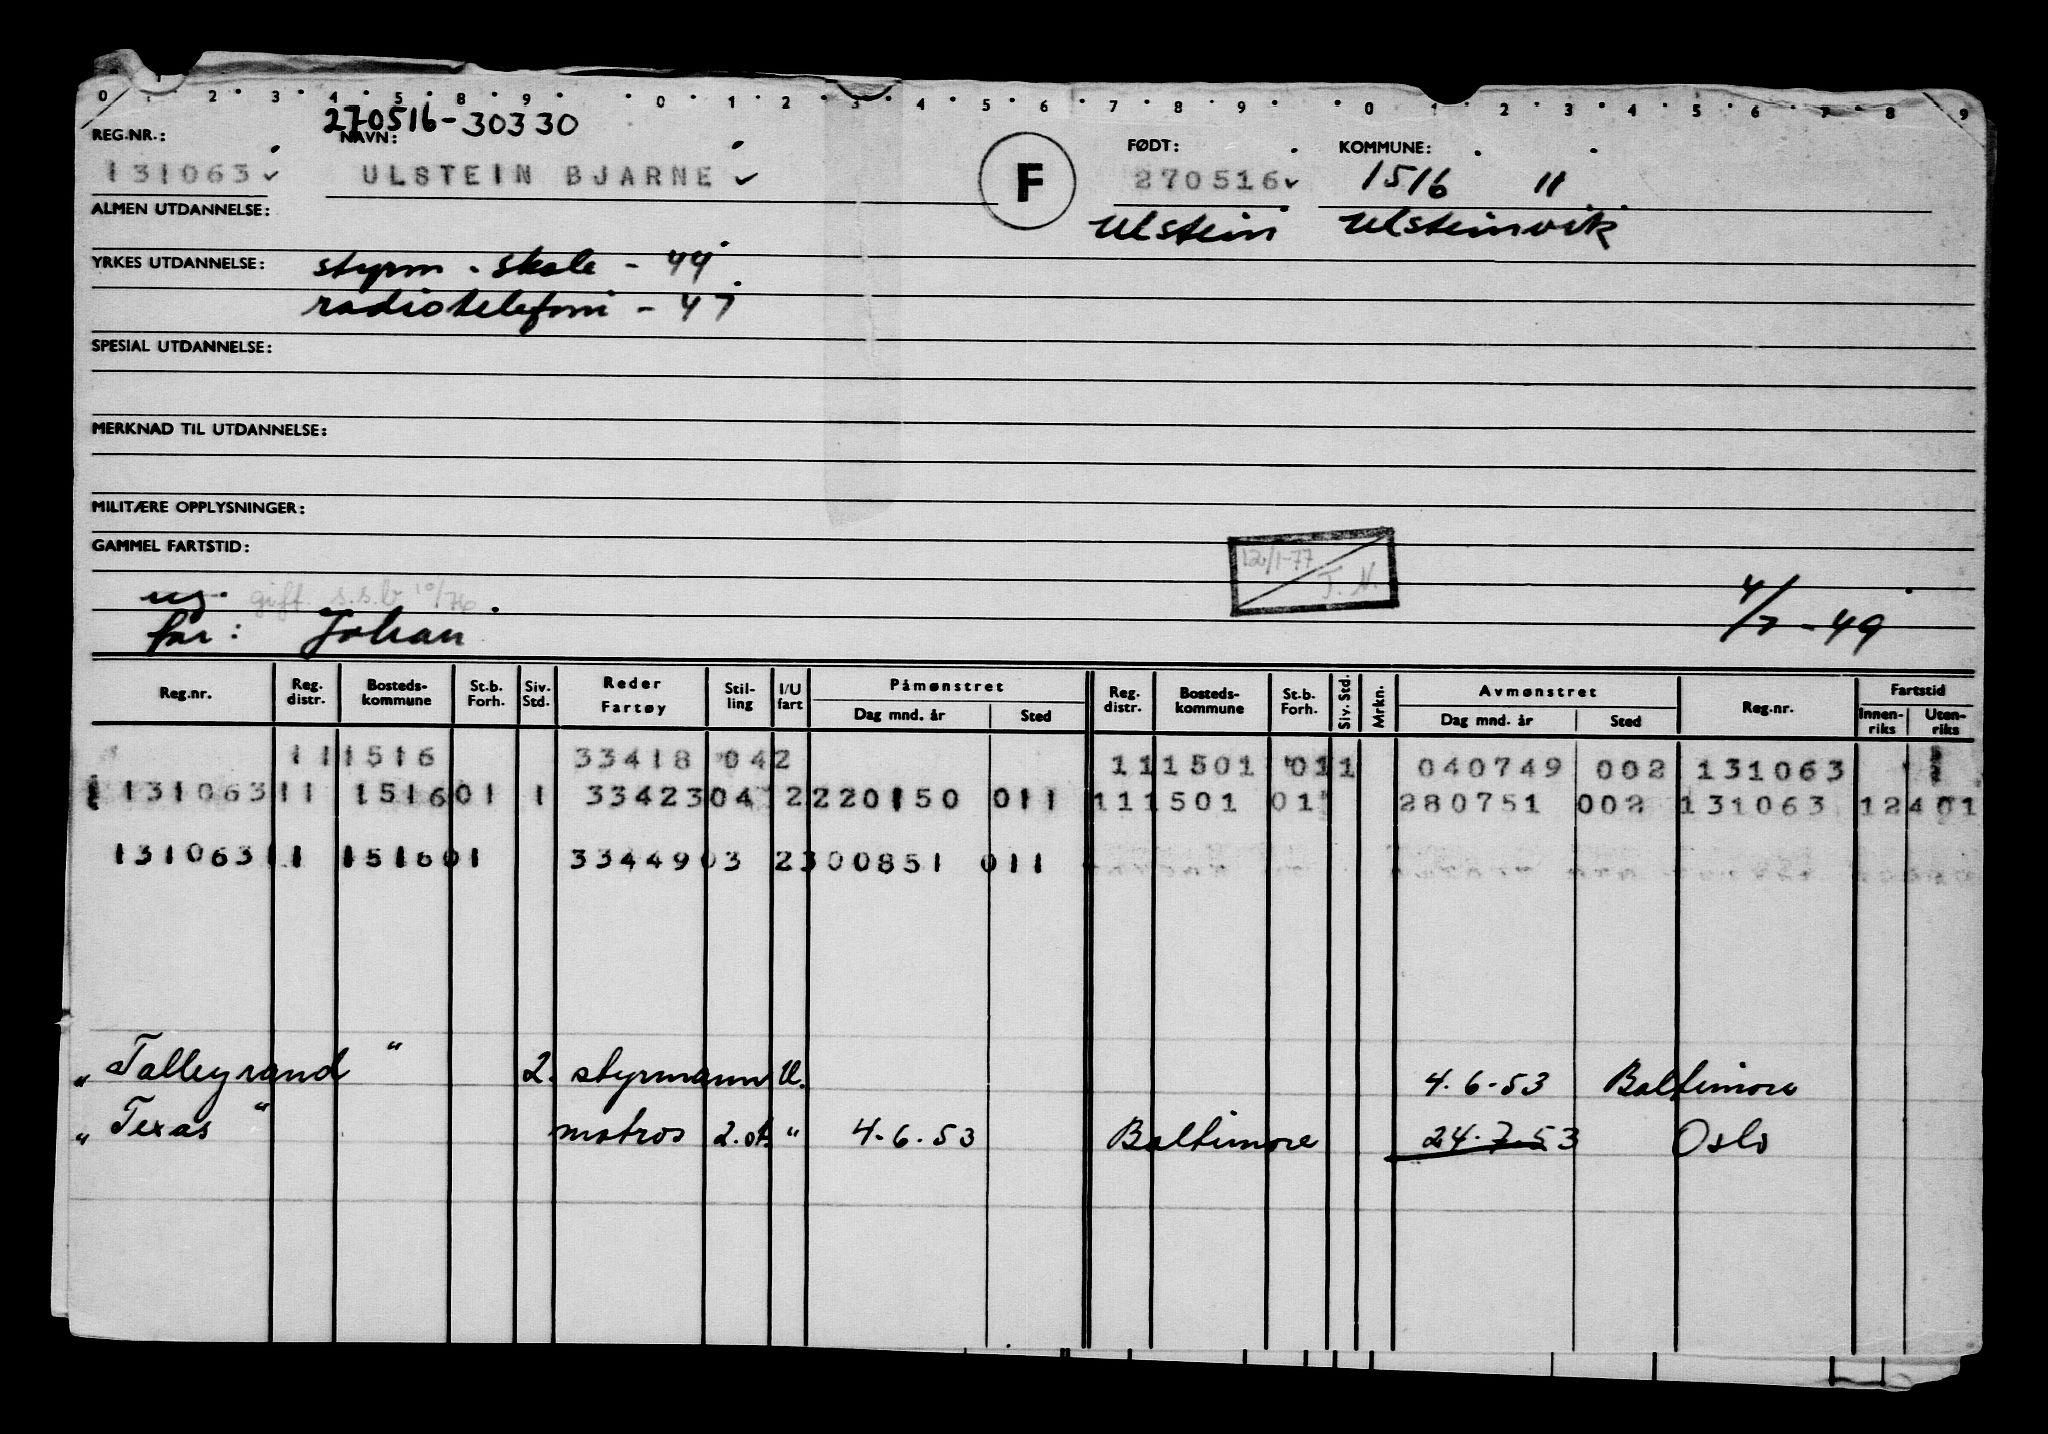 0 1 2 3 4 5 8 9 0 1 2 3 4 5 6 7 8 9 0 1 2 3 4 5 6 7 8 9
270516-30330
REG.NR.: NAVN: FØDT: KOMMUNE:
131063 ✓ ULSTEIN BJARNE ✓ F 270516 ✓ 1516 11
ALMEN UTDANNELSE: Ulstein Ulsteinvik
YRKES UTDANNELSE: styrm. skole - 44
radiotelefoni - 47
SPESIAL UTDANNELSE:
MERKNAD TIL UTDANNELSE:
MILITÆRE OPPLYSNINGER:
GAMMEL FARTSTID:
12/1-77 T. N.
ug. gift. s.s.b 10/76 4/7-49
far: Johan
Reg.nr. Reg. distr. Bosteds-kommune St.b. Forh. Siv. Std. Reder Fartøy Stil-ling I/U fart Påmønstret Dag mnd. år Sted Reg. distr. Bosteds-kommune St.b. Forh. Siv. Std. Mrkn. Avmønstret Dag mnd. år Sted Reg.nr. Fartstid Innen-riks Uten-riks
11 1516 33418 04 2 11 1501 01 1 040749 002 131063
131063 11 1516 01 1 33423 04 2 220150 011 11 1501 01 280751 002 131063 12401
131063 11 1516 01 33449 03 2 300851 011
„Talleyrand" 2. styrmann U. 4.6-53 Baltimore
„Texas" matros 2.st. " 4.6.53 Baltimore 24.7.53 Oslo